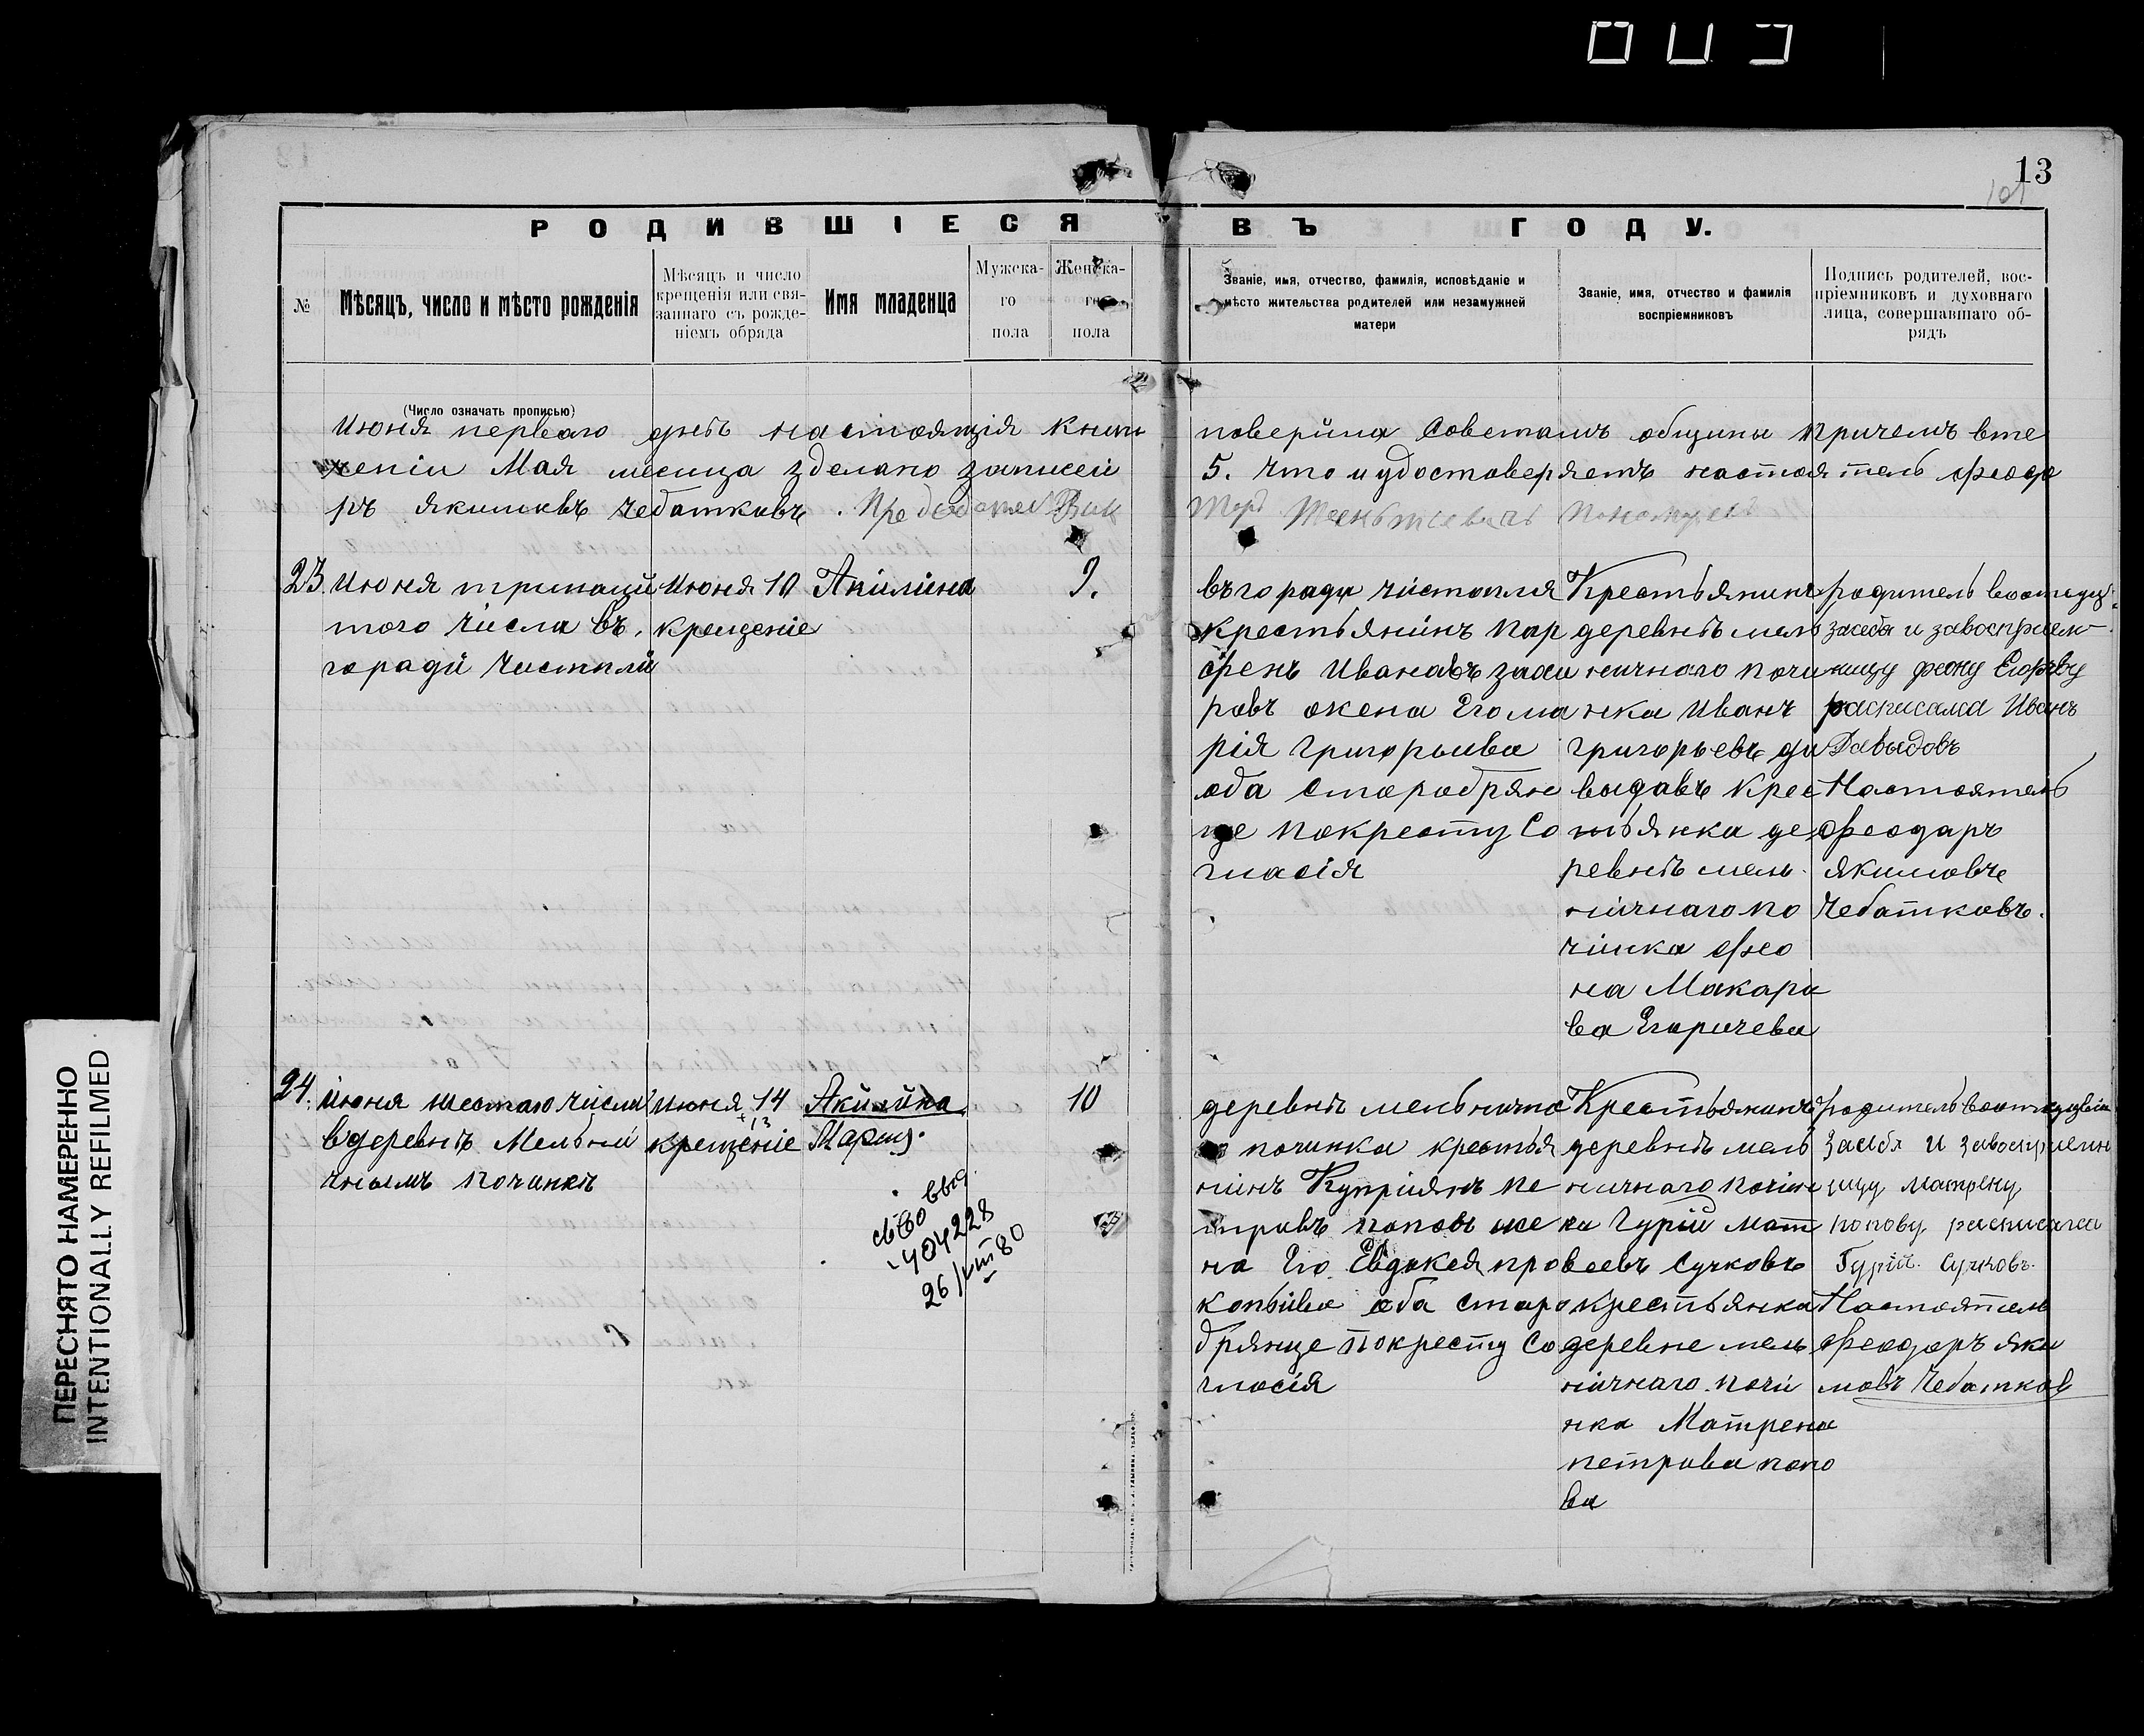 13
101
РОДИВШІЕСЯ ВЪ ГОДУ.
№
Мѣсяцъ, число и мѣсто рожденія
Мѣсяцъ и число
крещенія или свя-
заннаго съ рожде-
ніемъ обряда
Имя младенца
Мужска-
го
пола
Женска-
го
пола
Званіе, имя, отчество, фамилія, исповѣданіе и
мѣсто жительства родителей или незамужней
матери
Званіе, имя, отчество и фамилія
воспріемниковъ
Подпись родителей, вос-
пріемниковъ и духовнаго
лица, совершавшаго об-
рядъ
(Число означать прописью)
Июня перваго днѣ настоящія книги поверина Советамъ общины причемъ вте
ченіи Мая месеца зделано записеи 5. что и удостоверяетъ настоятель феодо
ръ якимовъ Чебатковъ. Председател
23.
Июня
того числа въ.
горади Чистпли
Июня 10
крещеніе
Акилина
9.
въгоради чистополя
крестьянинъ пар
фенъ Ивановъ
ровъ жена Его ма
рія Григорьива
оба старобрян
це покресту Со
гласія
Крестьянинъ
деревнѣ мель
ничнаго почи
нка Иванъ
григорьевъ да
выдавъ Крес
тьянка де
ревнѣ мель
ничнаго по
чинка фео
на Макари
ва Егаричева
родитель
засебя и завосприем
ницу феону
расписалса Иванъ
Давыдовъ
Настоятель
феодаръ
якимовъ
Чебатковъ.
24.
июня шестаго числа
вдеревнѣ Мельни
чнымъ починкѣ
Июня 14
+13
крещеніе
Акилина
Марія.
св-во выд.
404228
26/VIII 80
10
деревнѣ мельнично
го починка крестья
нинъ Куприянъ пе
тровъ поповъ же
на Его Евдокея про
копьива оба старо
брянце покресту Со
гласія
Крестьянинъ
деревнѣ мель
ничнаго почин
ка Гурій мат
веевъ Сучковъ
крестьянка
деревне мель
ничнаго почи
нка Матрена
петрова попо
ва
родитель
засебя и завосприемн
ицу матрену
попову расписалса
Гурій Сучковъ.
Настоятель
феодоръ яки
мовъ Чебатков
ПЕРЕСНЯТО НАМЕРЕННО
INTENTIONALLY REFILMED